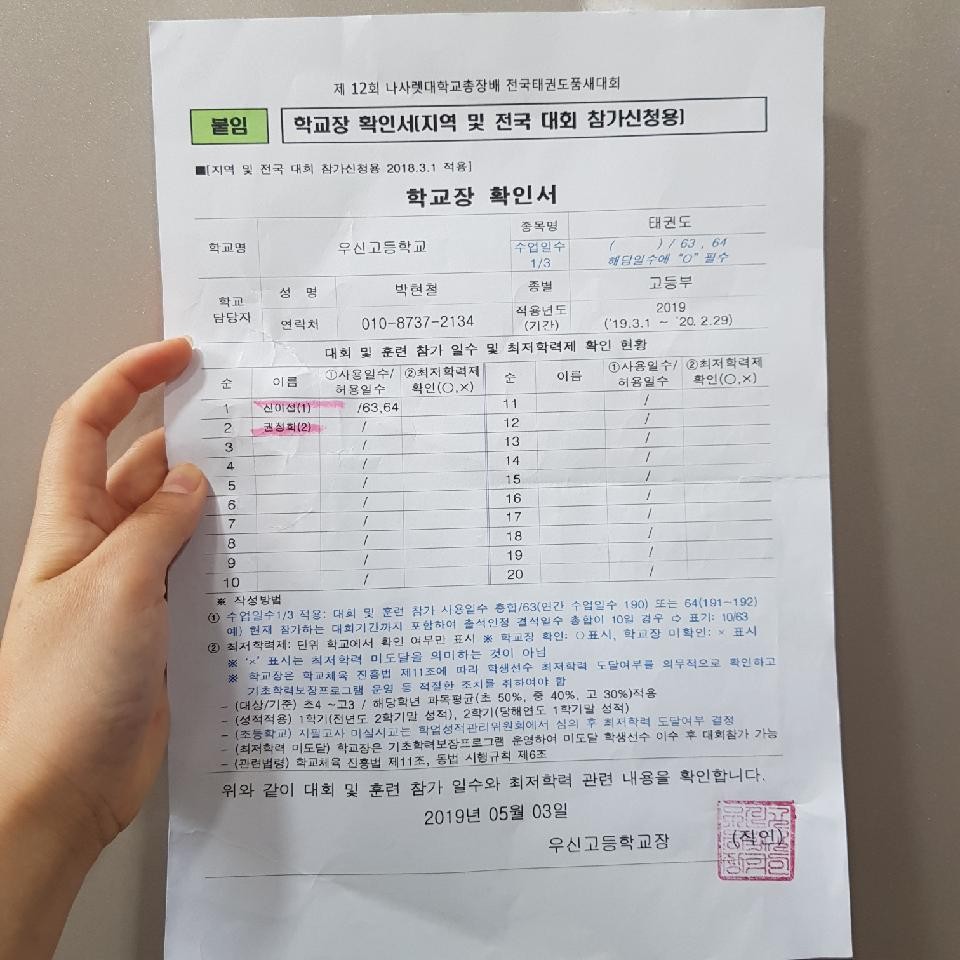 제 12회 나사렛대학교총장배 전국태권도품새대회
붙임 학교장 확인서(지역 및 전국 대회 참가신청용)
■[지역 및 전국 대회 참가신청용 2018.3.1 적용]
학교장 확인서
학교명 우신고등학교 종목명 태권도
수업일수 1/3 ( ) / 63 , 64
해당일수에 "O" 필수
학교 담당자 성 명 박현철 종별 고등부
연락처 010-8737-2134 적용년도 (기간) 2019
('19.3.1 ~ '20.2.29)
대회 및 훈련 참가 일수 및 최저학력제 확인 현황
순 이름 ①사용일수/허용일수 ②최저학력제 확인(○,×) 순 이름 ①사용일수/허용일수 ②최저학력제 확인(○,×)
1 신이섭(1) /63,64 11 /
2 권정희(2) / 12 /
3 / 13 /
4 / 14 /
5 / 15 /
6 / 16 /
7 / 17 /
8 / 18 /
9 / 19 /
10 / 20 /
※ 작성방법
① 수업일수1/3 적용: 대회 및 훈련 참가 사용일수 총합/63(연간 수업일수 190) 또는 64(191~192)
예) 현재 참가하는 대회기간까지 포함하여 출석인정 결석일수 총합이 10일 경우 ⇨ 표기: 10/63
② 최저학력제: 단위 학교에서 확인 여부만 표시 ※ 학교장 확인: ○표시, 학교장 미확인: × 표시
※ '×' 표시는 최저학력 미도달을 의미하는 것이 아님
※ 학교장은 학교체육 진흥법 제11조에 따라 학생선수 최저학력 도달여부를 의무적으로 확인하고
기초학력보장프로그램 운영 등 적절한 조치를 취하여야 함
- (대상/기준) 초4 ~고3 / 해당학년 과목평균(초 50%, 중 40%, 고 30%)적용
- (성적적용) 1학기(전년도 2학기말 성적), 2학기(당해연도 1학기말 성적)
- (초등학교) 지필고사 미실시교는 학업성적관리위원회에서 심의 후 최저학력 도달여부 결정
- (최저학력 미도달) 학교장은 기초학력보장프로그램 운영하여 미도달 학생선수 이수 후 대회참가 가능
- (관련법령) 학교체육 진흥법 제11조, 동법 시행규칙 제6조
위와 같이 대회 및 훈련 참가 일수와 최저학력 관련 내용을 확인합니다.
2019년 05월 03일
우신고등학교장 (직인)